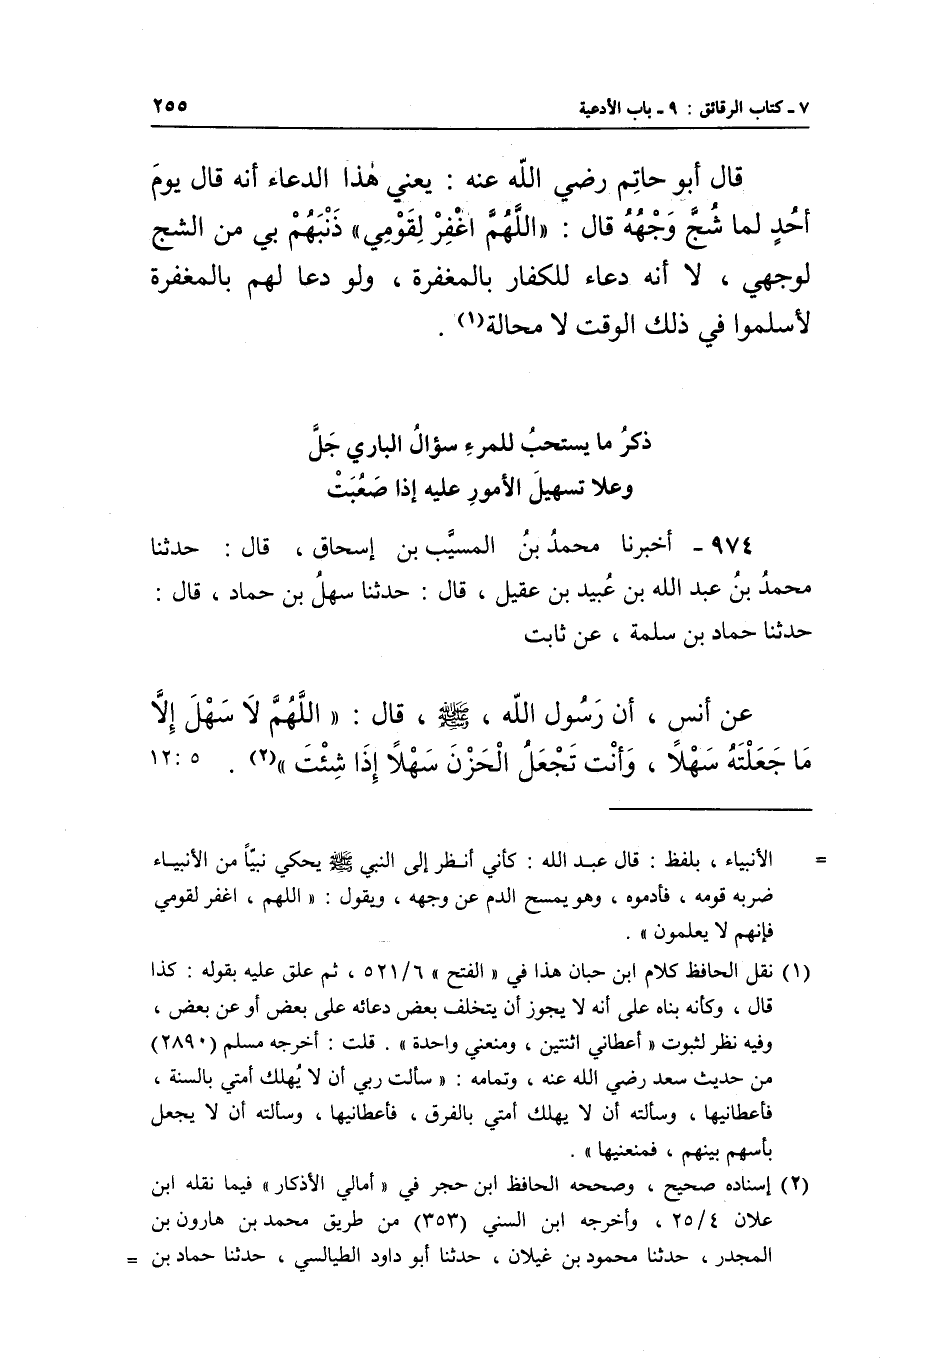 ٧ ـ كتاب الرقائق : ٩ ـ باب الأدعية ٢٥٥
قال أبو حاتِم رضي اللّه عنه : يعني هٰذا الدعاء أنه قال يومَ
أُحُدٍ لما شُجَّ وَجْهُهُ قال : «اللَّهُمَّ اغْفِرْ لِقَوْمِي» ذَنْبَهُمْ بي من الشج
لوجهي ، لا أنه دعاء للكفار بالمغفرة ، ولو دعا لهم بالمغفرة
لأسلموا في ذلك الوقت لا محالة(١) .
ذكرُ ما يستحبُ للمرءِ سؤالُ الباري جَلَّ
وعلا تسهيلَ الأمورِ عليه إذا صَعُبَتْ
٩٧٤ ـ أخبرنا محمدُ بنُ المسيَّب بن إسحاق ، قال : حدثنا
محمدُ بنُ عبد الله بن عُبيد بن عقيل ، قال : حدثنا سهلُ بن حماد ، قال :
حدثنا حماد بن سلمة ، عن ثابت
عن أنس ، أن رَسُول اللّه ، ﷺ ، قال : « اللَّهُمَّ لَا سَهْلَ إِلَّا
مَا جَعَلْتَهُ سَهْلًا ، وَأَنْت تَجْعَلُ الْحَزْنَ سَهْلًا إِذَا شِئْتَ »(٢) . ٥ : ١٢
= الأنبياء ، بلفظ : قال عبد الله : كأني أنظر إلى النبي ﷺ يحكي نبيّاً من الأنبياء
ضربه قومه ، فأدموه ، وهو يمسح الدم عن وجهه ، ويقول : « اللهم ، اغفر لقومي
فإنهم لا يعلمون » .
(١) نقل الحافظ كلام ابن حبان هذا في « الفتح » ٥٢١/٦ ، ثم علق عليه بقوله : كذا
قال ، وكأنه بناه على أنه لا يجوز أن يتخلف بعض دعائه على بعض أو عن بعض ،
وفيه نظر لثبوت « أعطاني اثنتين ، ومنعني واحدة » . قلت : أخرجه مسلم (٢٨٩٠)
من حديث سعد رضي الله عنه ، وتمامه : « سألت ربي أن لا يُهلك أمتي بالسنة ،
فأعطانيها ، وسألته أن لا يهلك أمتي بالفرق ، فأعطانيها ، وسألته أن لا يجعل
بأسهم بينهم ، فمنعنيها » .
(٢) إسناده صحيح ، وصححه الحافظ ابن حجر في « أمالي الأذكار » فيما نقله ابن
علان ٢٥/٤ ، وأخرجه ابن السني (٣٥٣) من طريق محمد بن هارون بن
المجدر ، حدثنا محمود بن غيلان ، حدثنا أبو داود الطيالسي ، حدثنا حماد بن =